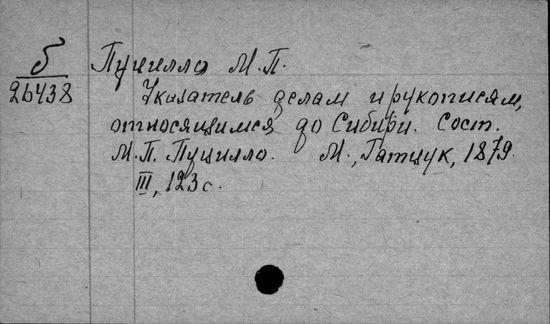 Б
26438
Пуцилло М.П.
Указатель делам и рукописям,
относящимся до Сибири. Сост.
М.П. Пуцилло. М., Гатцук, 1879.
III, 123 с.